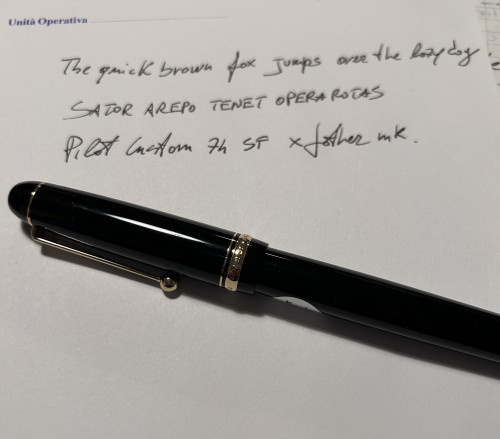 Unità Operativa
The quick brown fox jumps over the lazy dog.
SATOR AREPO TENET OPERA ROTAS
Pilot Custom 74 SF x